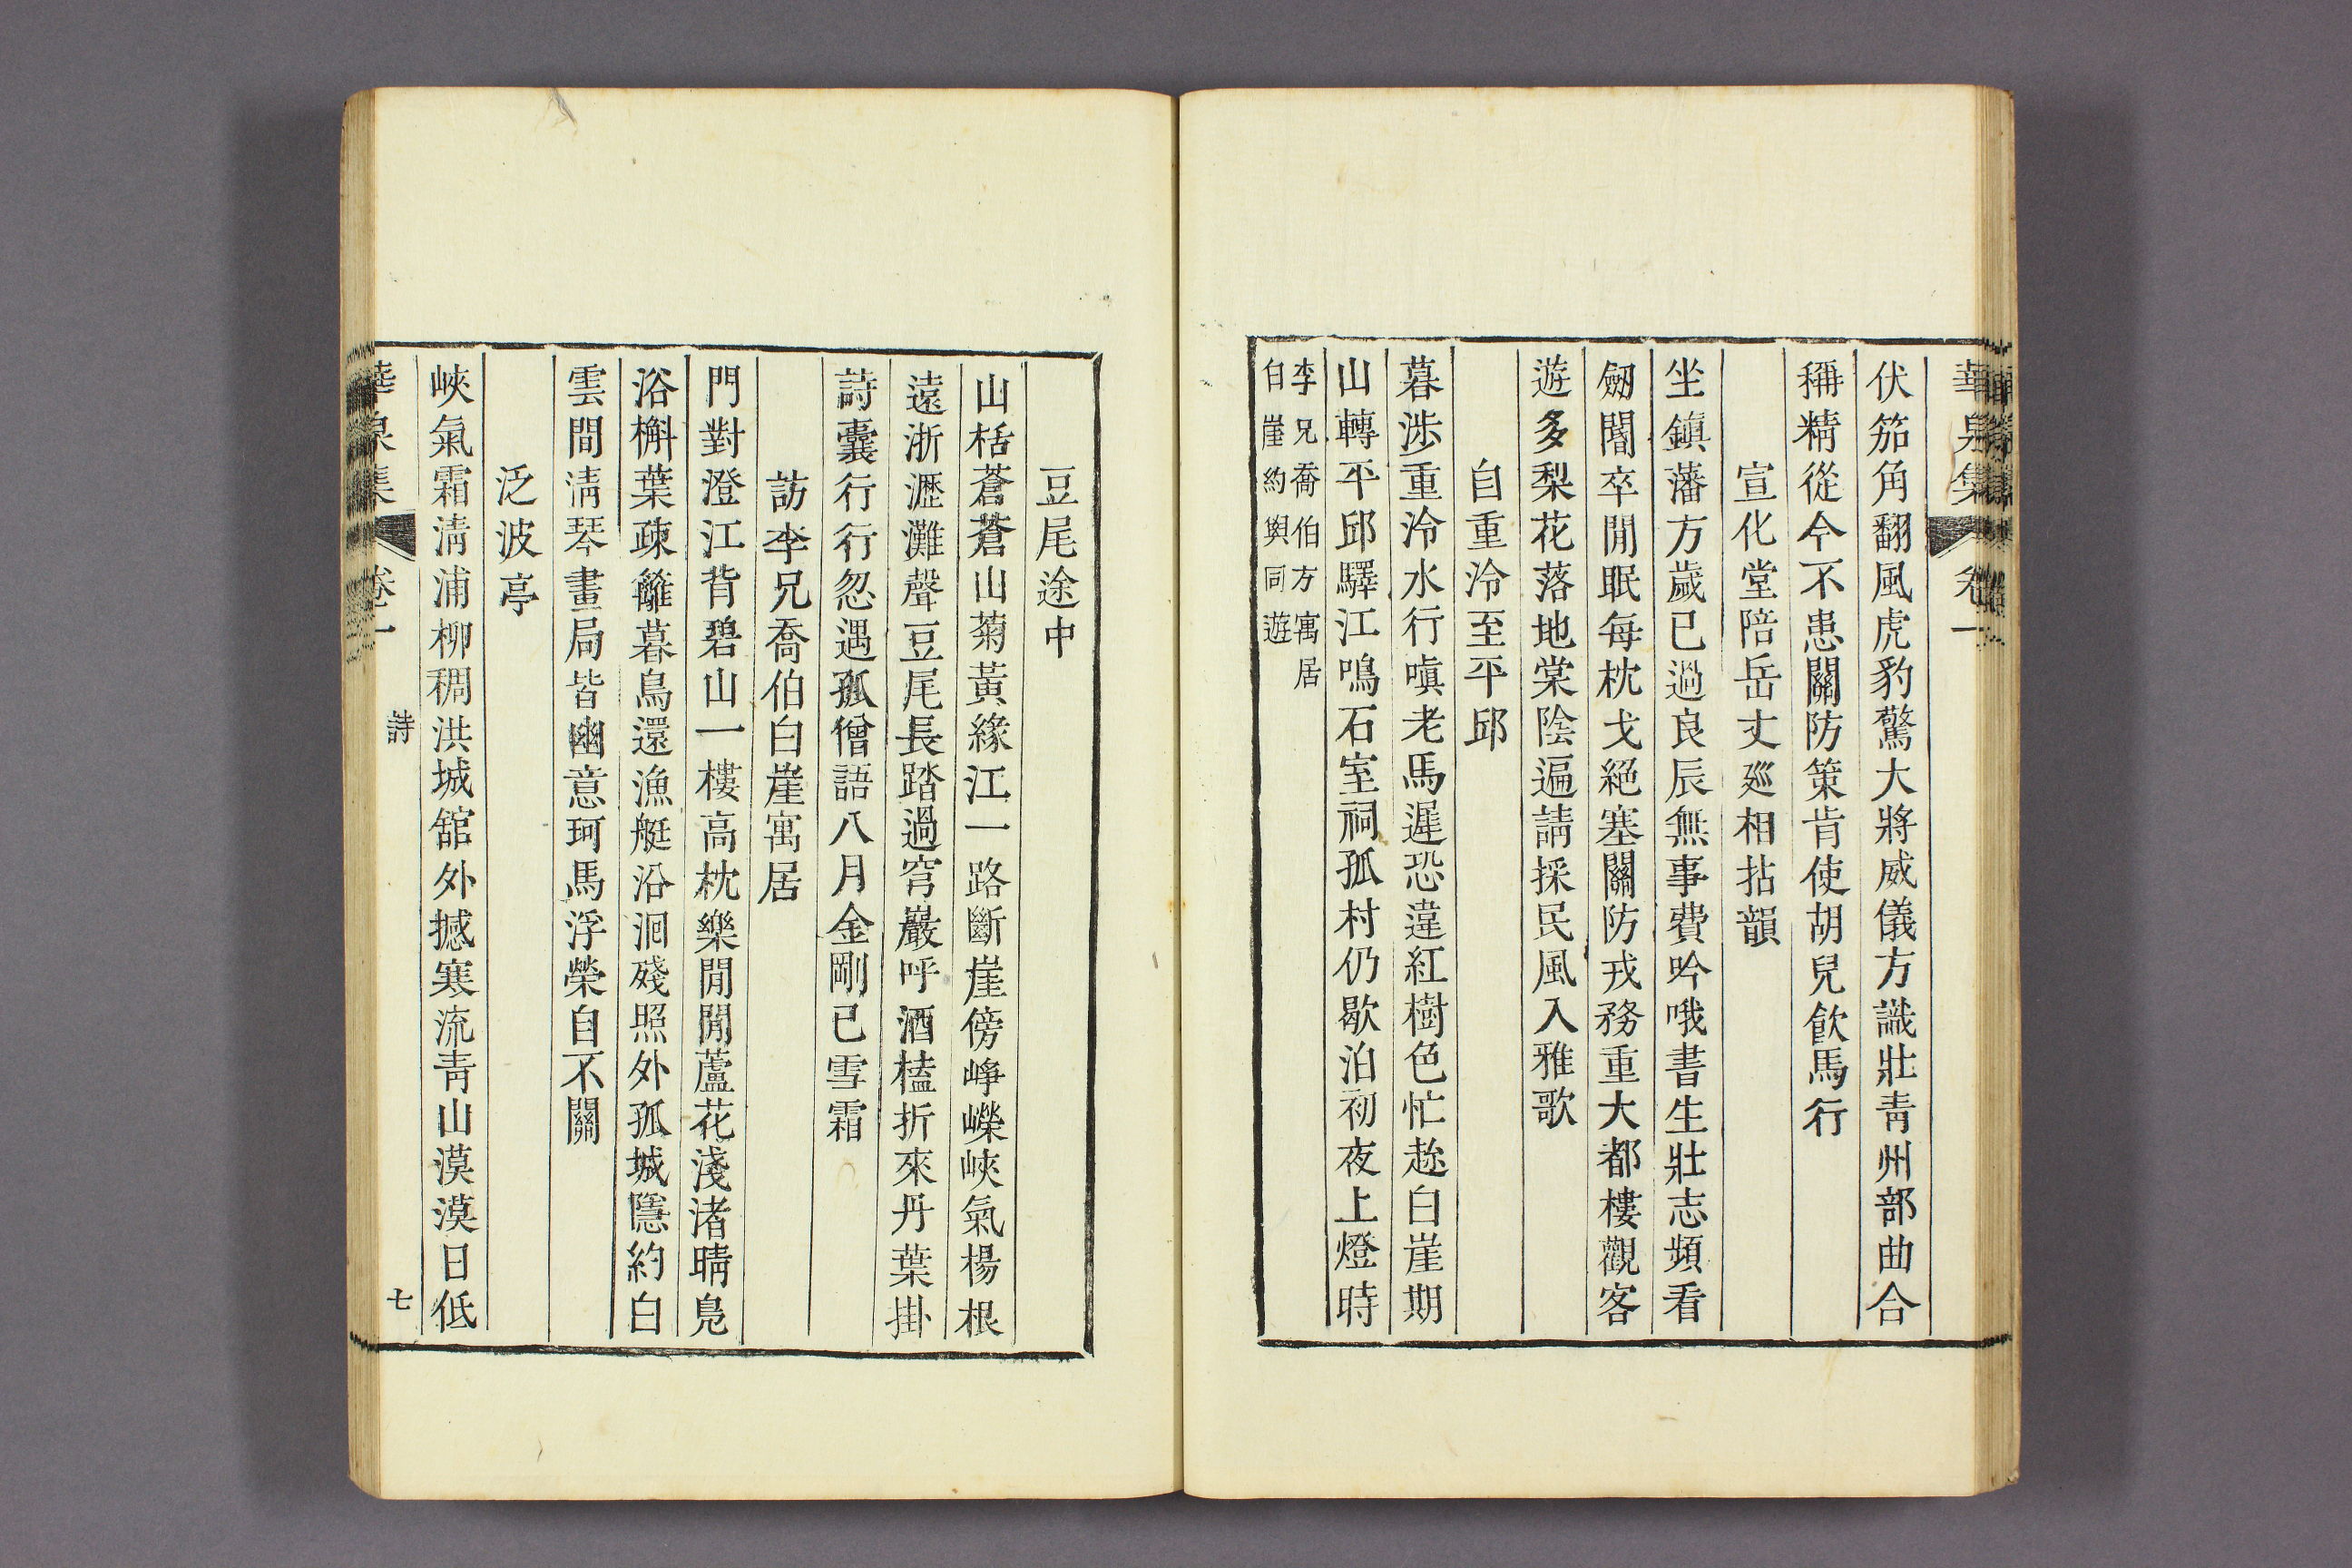 華泉集 卷一
伏笳角翻風虎豹驚大將威儀方識壯青州部曲合
稱精從今不患關防策肯使胡兒飮馬行
宣化堂陪岳丈廵相拈韻
坐鎮藩方歲已過良辰無事費吟哦書生壯志頻看
劒閽卒閒眠每枕戈絕塞關防戎務重大都樓觀客
遊多梨花落地棠陰遍請採民風入雅歌
自重泠至平邱
暮涉重泠水行嗔老馬遲恐違紅樹色忙趂白崖期
山轉平邱驛江鳴石室祠孤村仍歇泊初夜上燈時
李兄喬伯方寓居
白崖約與同遊
豆尾途中
山栝蒼蒼山菊黃緣江一路斷崖傍崢嶸峽氣楊根
遠浙瀝灘聲豆尾長踏過穹巖呼酒榼折來丹葉掛
詩囊行行忽遇孤僧語八月金剛已雪霜
訪李兄喬伯白崖寓居
門對澄江背碧山一樓高枕樂閒閒蘆花淺渚晴鳧
浴槲葉疎籬暮鳥還漁艇沿洄殘照外孤城隱約白
雲間淸琴畫局皆幽意珂馬浮榮自不關
泛波亭
峽氣霜淸浦柳稠洪城舘外撼寒流靑山漠漠日低
華泉集 卷一 詩 七